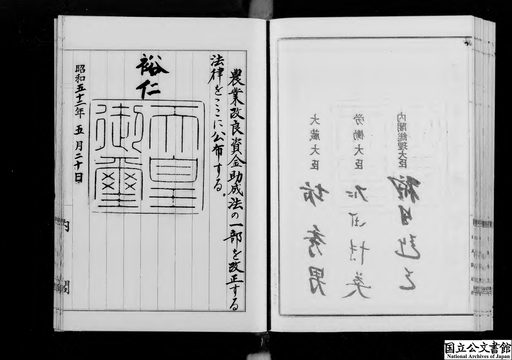 内閣総理大臣 福田赳夫
労働大臣 石田博英
大蔵大臣 坊秀男
農業改良資金助成法の一部を改正する
法律をここに公布する。
裕仁
天皇
御璽
昭和五十二年五月二十日
内閣
国立公文書館
National Archives of Japan